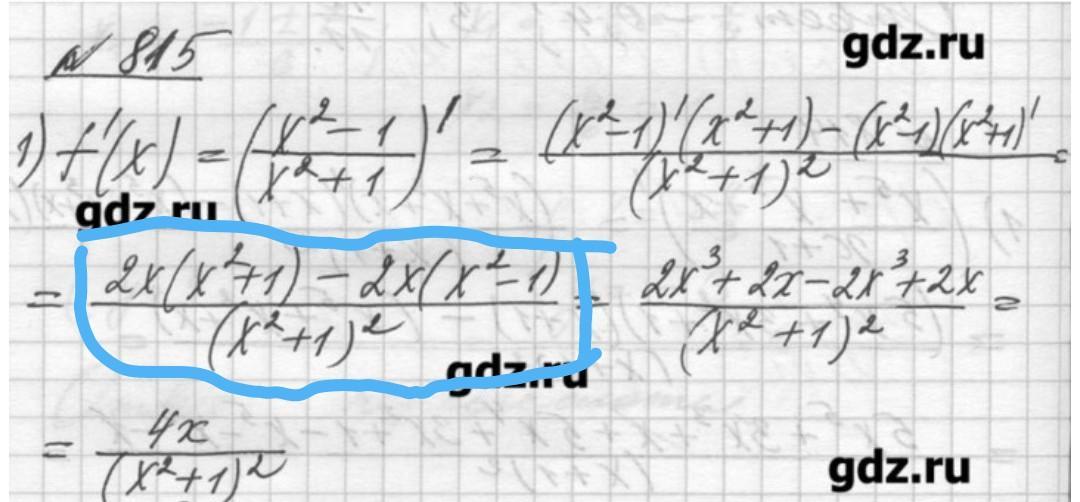 № 815 gdz.ru
1) f'(x) = ((x² - 1)/(x² + 1))' = ((x² - 1)'(x² + 1) - (x² - 1)(x² + 1)')/(x² + 1)² =
gdz.ru
= (2x(x² + 1) - 2x(x² - 1))/(x² + 1)² = (2x³ + 2x - 2x³ + 2x)/(x² + 1)² =
gdz.ru
= 4x/(x² + 1)²
gdz.ru